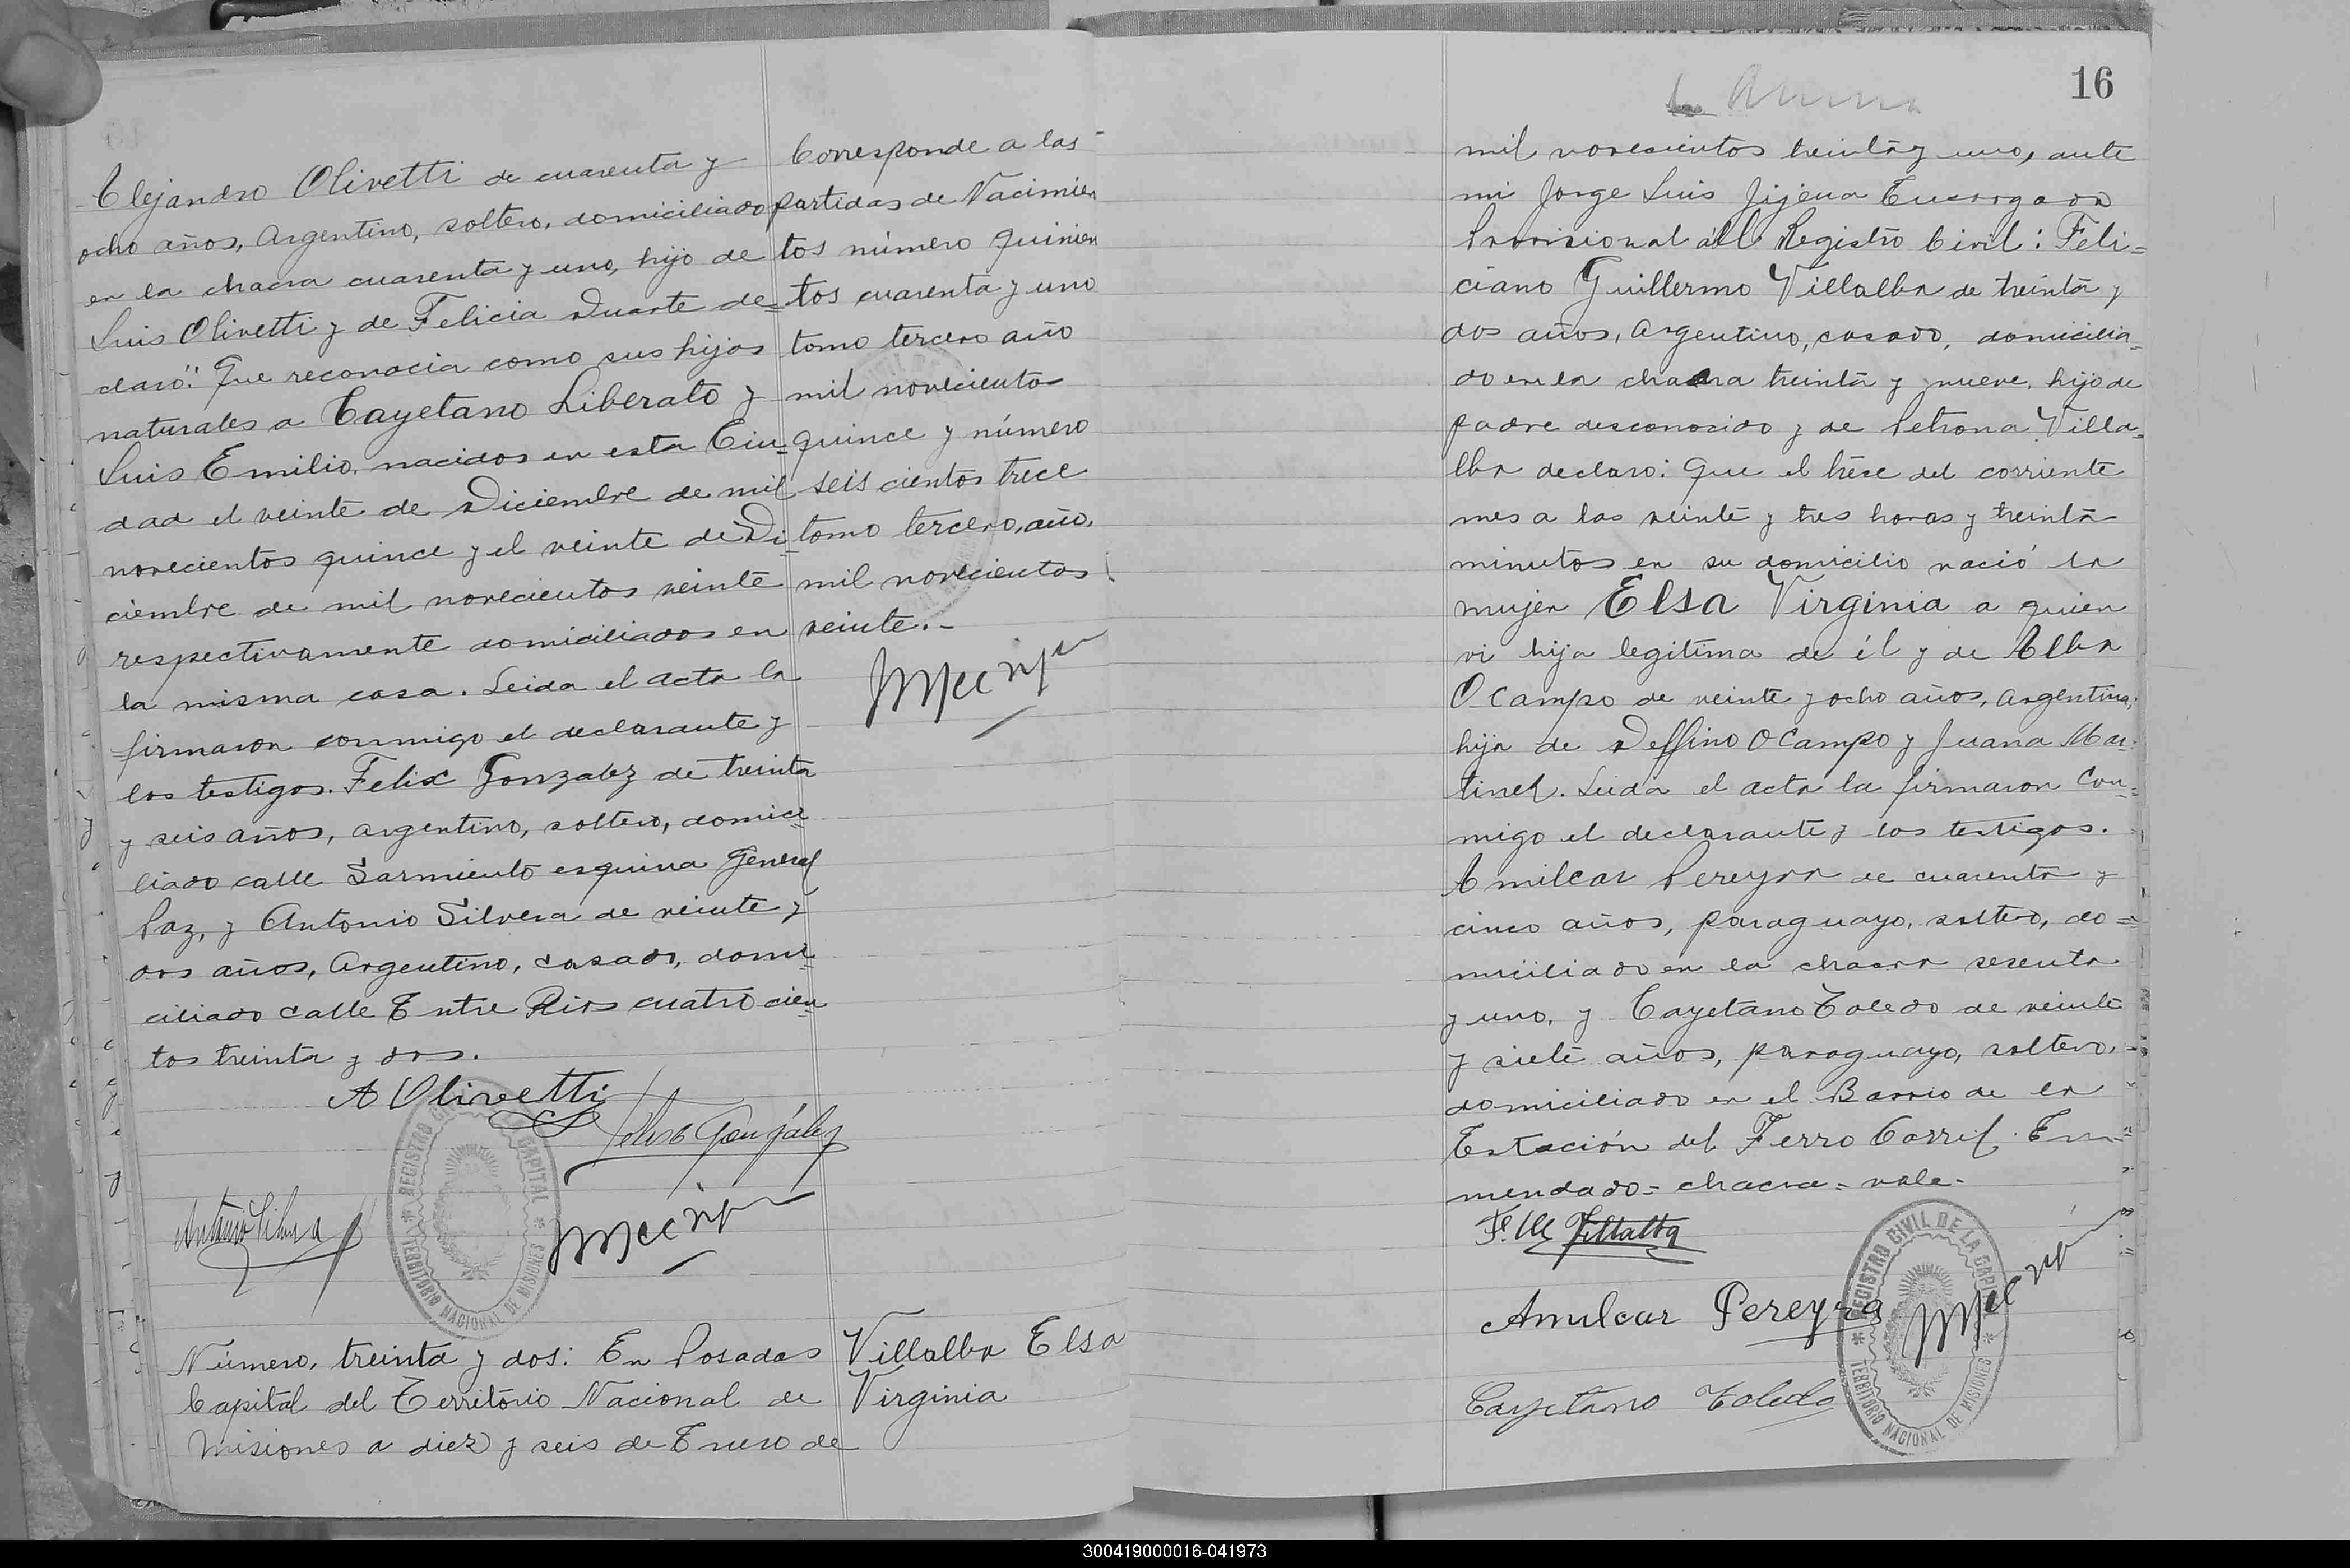 Alejandro Olivetti de cuarenta y
ocho años, Argentino, soltero, domiciliado
en la chacra cuarenta y uno, hijo de
Luis Olivetti y de Felicia Duarte de=
claró: Que reconocia como sus hijos
naturales a Cayetano Liberato y
Luis Emilio, nacidos en esta Ciu=
dad el veinte de Diciembre de mil
novecientos quince y el veinte de Di=
ciembre de mil novecientos veinte
respectivamente domiciliados en
la misma casa. Leida el acta la
firmaron conmigo el declarante y
los testigos. Felix Gonzalez de treinta
y seis años, argentino, soltero, domici=
liado calle Sarmiento esquina General
Paz, y Antonio Silvera de veinte y
dos años, Argentino, casado, domi=
ciliado calle Entre Rios cuatrocien=
tos treinta y dos.
A Olivetti
Felix González
Antonio Silvera
REGISTRO CAPITAL
TERRITORIO NACIONAL DE MISIONES
Corresponde a las
partidas de Nacimien
tos número quinien
tos cuarenta y uno
tomo tercero año
mil novecientos
quince y número
seis cientos trece
tomo tercero, año,
mil novecientos
veinte.-
Número, treinta y dos: En Posadas
Capital del Territorio Nacional de
Misiones a diez y seis de Enero de
Villalba Elsa
Virginia
16
mil novecientos treinta y uno, ante
mi Jorge Luis Jijena Encargado
Provisional del Registro Civil: Feli=
ciano Guillermo Villalba de treinta y
dos años, Argentino, casado, domicilia=
do en la chacra treinta y nueve, hijo de
padre desconocido y de Petrona Villa=
lba declaro: Que el trece del corriente
mes a las veinte y tres horas y treinta
minutos en su domicilio nació la
mujer Elsa Virginia a quien
vi hija legitima de él y de Alba
Ocampo de veinte y ocho años, argentina,
hija de Delfino Ocampo y Juana Mar=
tinez. Leida el acta la firmaron con=
migo el declarante y los testigos.
Amilcar Pereyra de cuarenta y
cinco años, paraguayo, soltero, do=
miciliado en la chacra sesenta
y uno, y Cayetano Toledo de veinte
y siete años, paraguayo, soltero,
domiciliado en el Barrio de la
Estación del Ferro Carril. En=
mendado= chacra= vale-
Villalba
Amilcar Pereyra
Cayetano Toledo
REGISTRO CIVIL DE LA CAPITAL
TERRITORIO NACIONAL DE MISIONES
300419000016-041973